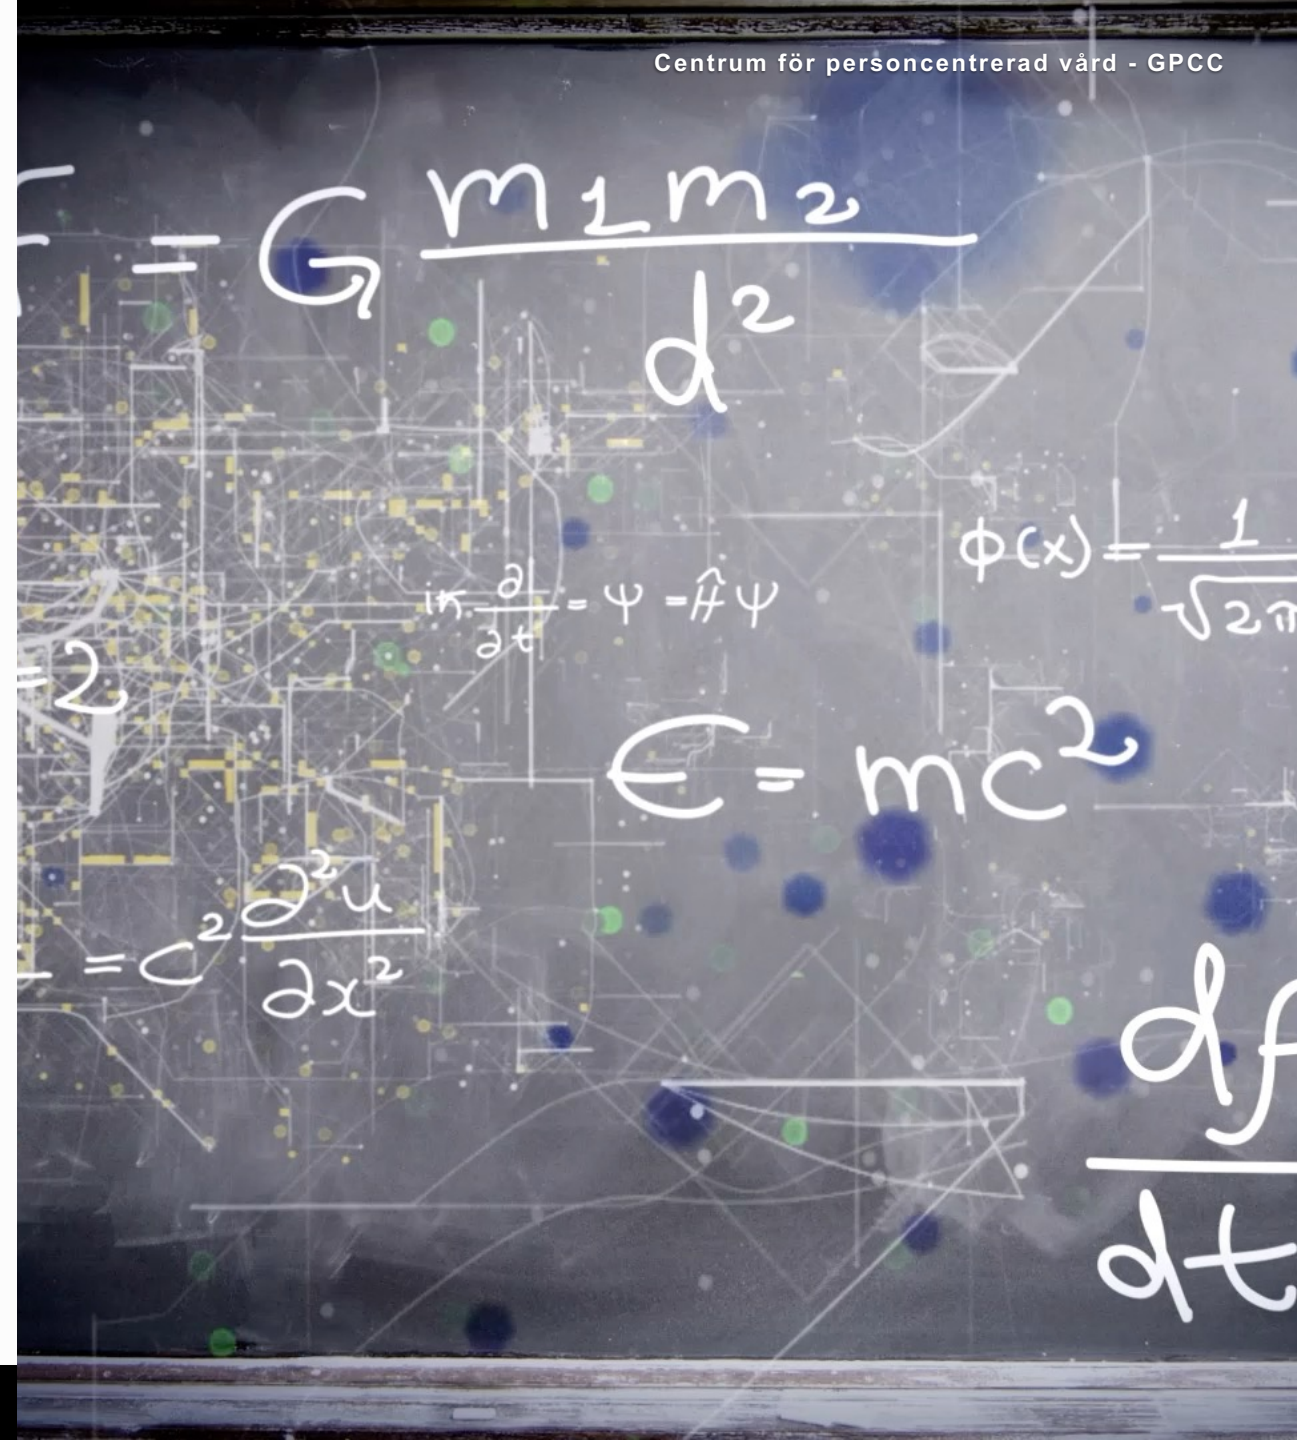 Centrum för personcentrerad vård - GPCC
F = G m1m2
d²
iℏ ∂/∂t = Ψ = ĤΨ
φ(x) = 1
√2π
=2
E = mc²
= c² ∂²u
∂x²
df
dt